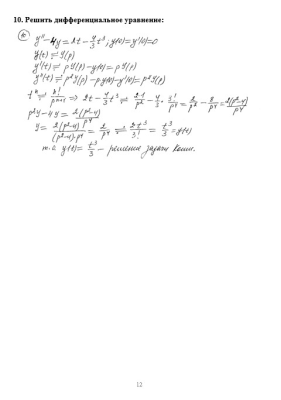 10. Решить дифференциальное уравнение:
10 y'' - 4y = 2t - 4/3 t³; y(0) = y'(0) = 0
y(t) ⇌ Y(p)
y'(t) ⇌ pY(p) - y(0) = pY(p)
y''(t) ⇌ p²Y(p) - py(0) - y'(0) = p²Y(p)
tⁿ ⇌ n!/pⁿ⁺¹ ⇒ 2t - 4/3 t³ ⇌ 2·1/p² - 4/3 · 3!/p⁴ = 2/p² - 8/p⁴ = 2(p²-4)/p⁴
p²Y - 4Y = 2(p²-4)/p⁴
Y = 2(p²-4)/(p²-4)·p⁴ = 2/p⁴ ⇌ 2t³/3! = t³/3 = y(t)
т.о. y(t) = t³/3 - решение задачи Коши.
12